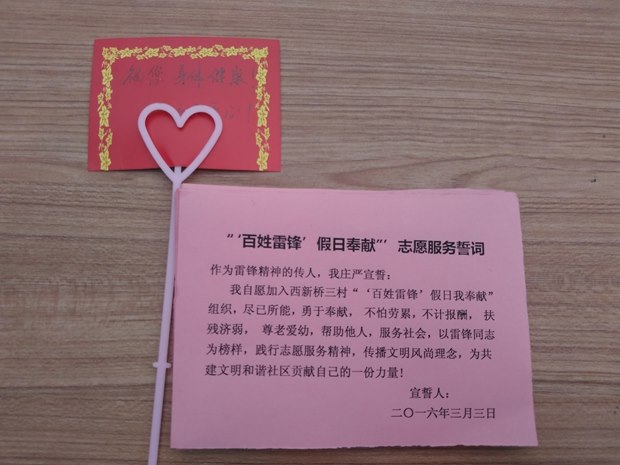 祝您身体健康
“‘百姓雷锋’假日奉献”’志愿服务誓词
作为雷锋精神的传人，我庄严宣誓：
我自愿加入西新桥三村“‘百姓雷锋’假日我奉献”
组织，尽已所能，勇于奉献，不怕劳累，不计报酬，扶
残济弱，尊老爱幼，帮助他人，服务社会，以雷锋同志
为榜样，践行志愿服务精神，传播文明风尚理念，为共
建文明和谐社区贡献自己的一份力量！
宣誓人：
二〇一六年三月三日